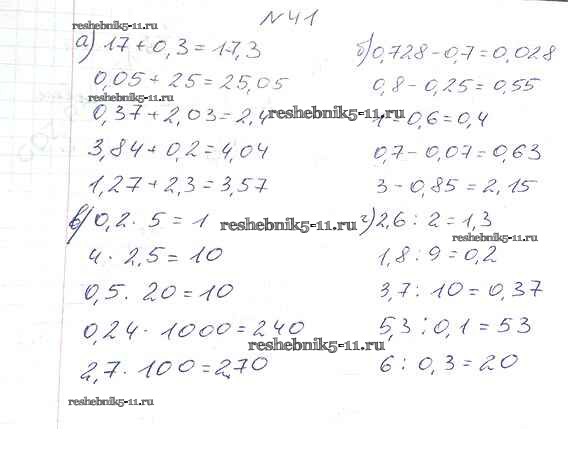 №41
reshebnik5-11.ru
а) 17 + 0,3 = 17,3
0,05 + 25 = 25,05
reshebnik5-11.ru
0,37 + 2,03 = 2,4
reshebnik5-11.ru
3,84 + 0,2 = 4,04
1,27 + 2,3 = 3,57
б) 0,728 - 0,7 = 0,028
0,8 - 0,25 = 0,55
1 - 0,6 = 0,4
0,7 - 0,07 = 0,63
3 - 0,85 = 2,15
в) 0,2 · 5 = 1
reshebnik5-11.ru
4 · 2,5 = 10
0,5 · 20 = 10
0,24 · 1000 = 240
reshebnik5-11.ru
2,7 · 100 = 270
reshebnik5-11.ru
г) 2,6 : 2 = 1,3
reshebnik5-11.ru
1,8 : 9 = 0,2
3,7 : 10 = 0,37
5,3 : 0,1 = 53
6 : 0,3 = 20